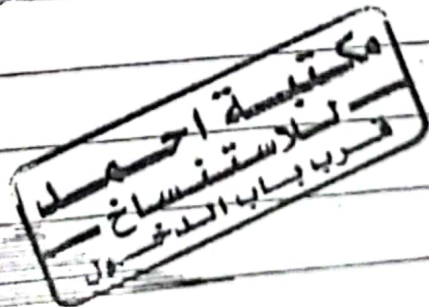 مكتبة احمد
— للاستنساخ —
قرب باب الدخول